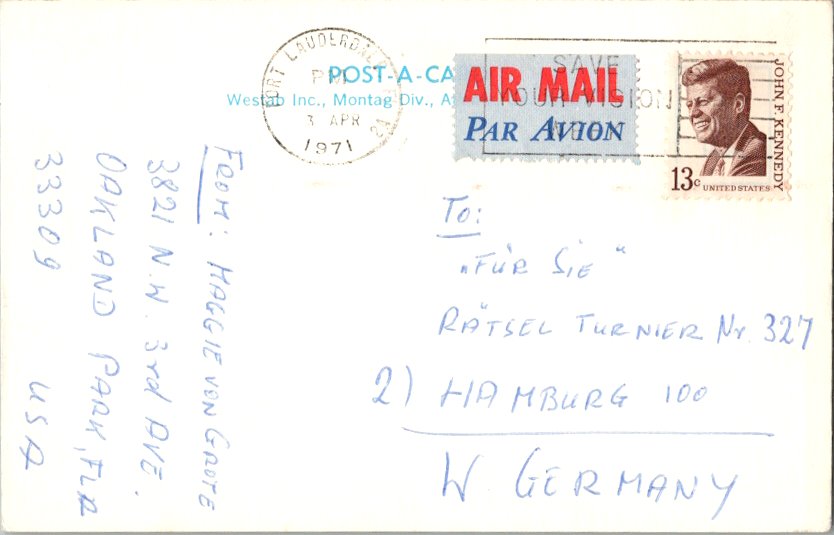 FORT LAUDERDALE
PM
3 APR
1971
POST-A-CA
Westab Inc., Montag Div.,
AIR MAIL
PAR AVION
SAVE
YOUR VISION
JOHN F. KENNEDY
13c UNITED STATES
To:
„FÜR SIE"
RÄTSEL TURNIER Nr. 327
2) HAMBURG 100
W. GERMANY
FROM: MAGGIE VON GROTE
3821 N.W. 3rd AVE.
OAKLAND PARK, FLA
33309 USA